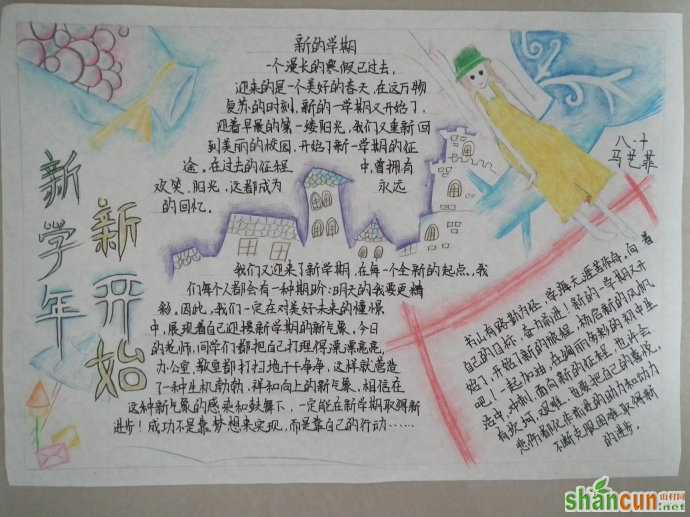 新的学期
一个漫长的寒假已过去,
迎来的是一个美好的春天,在这万物
复苏的时刻,新的一学期又开始了,
迎着早晨的第一缕阳光,我们又重新回
到美丽的校园,开始了新一学期的征
途。在过去的征程中,曾拥有
欢笑、阳光,这都成为永远
的回忆。
八·十
马艺菲
新学年
新开始
我们又迎来了新学期,在每一个全新的起点,我
们每个人都会有一种期盼:明天的我要更精
彩。因此,我们一定在对美好未来的憧憬
中,展现着自己迎接新学期的新气象,今日
的老师,同学们都把自己打理得漂漂亮亮,
办公室、教室都打扫地干干净净,这样就营造
了一种生机勃勃,祥和向上的新气象,相信在
这种新气象的感染和鼓舞下,一定能在新学期取得新
进步!成功不是靠梦想来实现,而是靠自己的行动……
书山有路勤为径,学海无涯苦作舟,向着
自己的目标,奋力前进!新的一学期又开
始了,开始了新的旅程,扬起新的风帆
吧!一起加油,在绚丽多彩的初中生
活中,冲刺,面向新的征程,也许会
有坎坷,艰难,但要把自己的喜悦,
悲伤都化作前进的动力和动力
不断克服困难,取得新
的进步。
shancun
山村网
.net